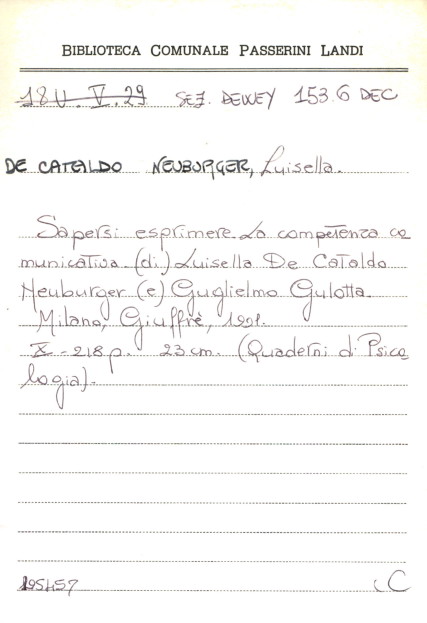 BIBLIOTECA COMUNALE PASSERINI LANDI
18U. V. 29 SEZ. DEWEY 153.6 DEC
DE CATALDO NEUBURGER, Luisella.
Sapersi esprimere. La competenza co
municativa. (di) Luisella De Cataldo
Neuburger (e) Guglielmo Gulotta.
Milano, Giuffrè, 1991.
X - 218 p. 23 cm. (Quaderni di Psico
logia).
195457 C